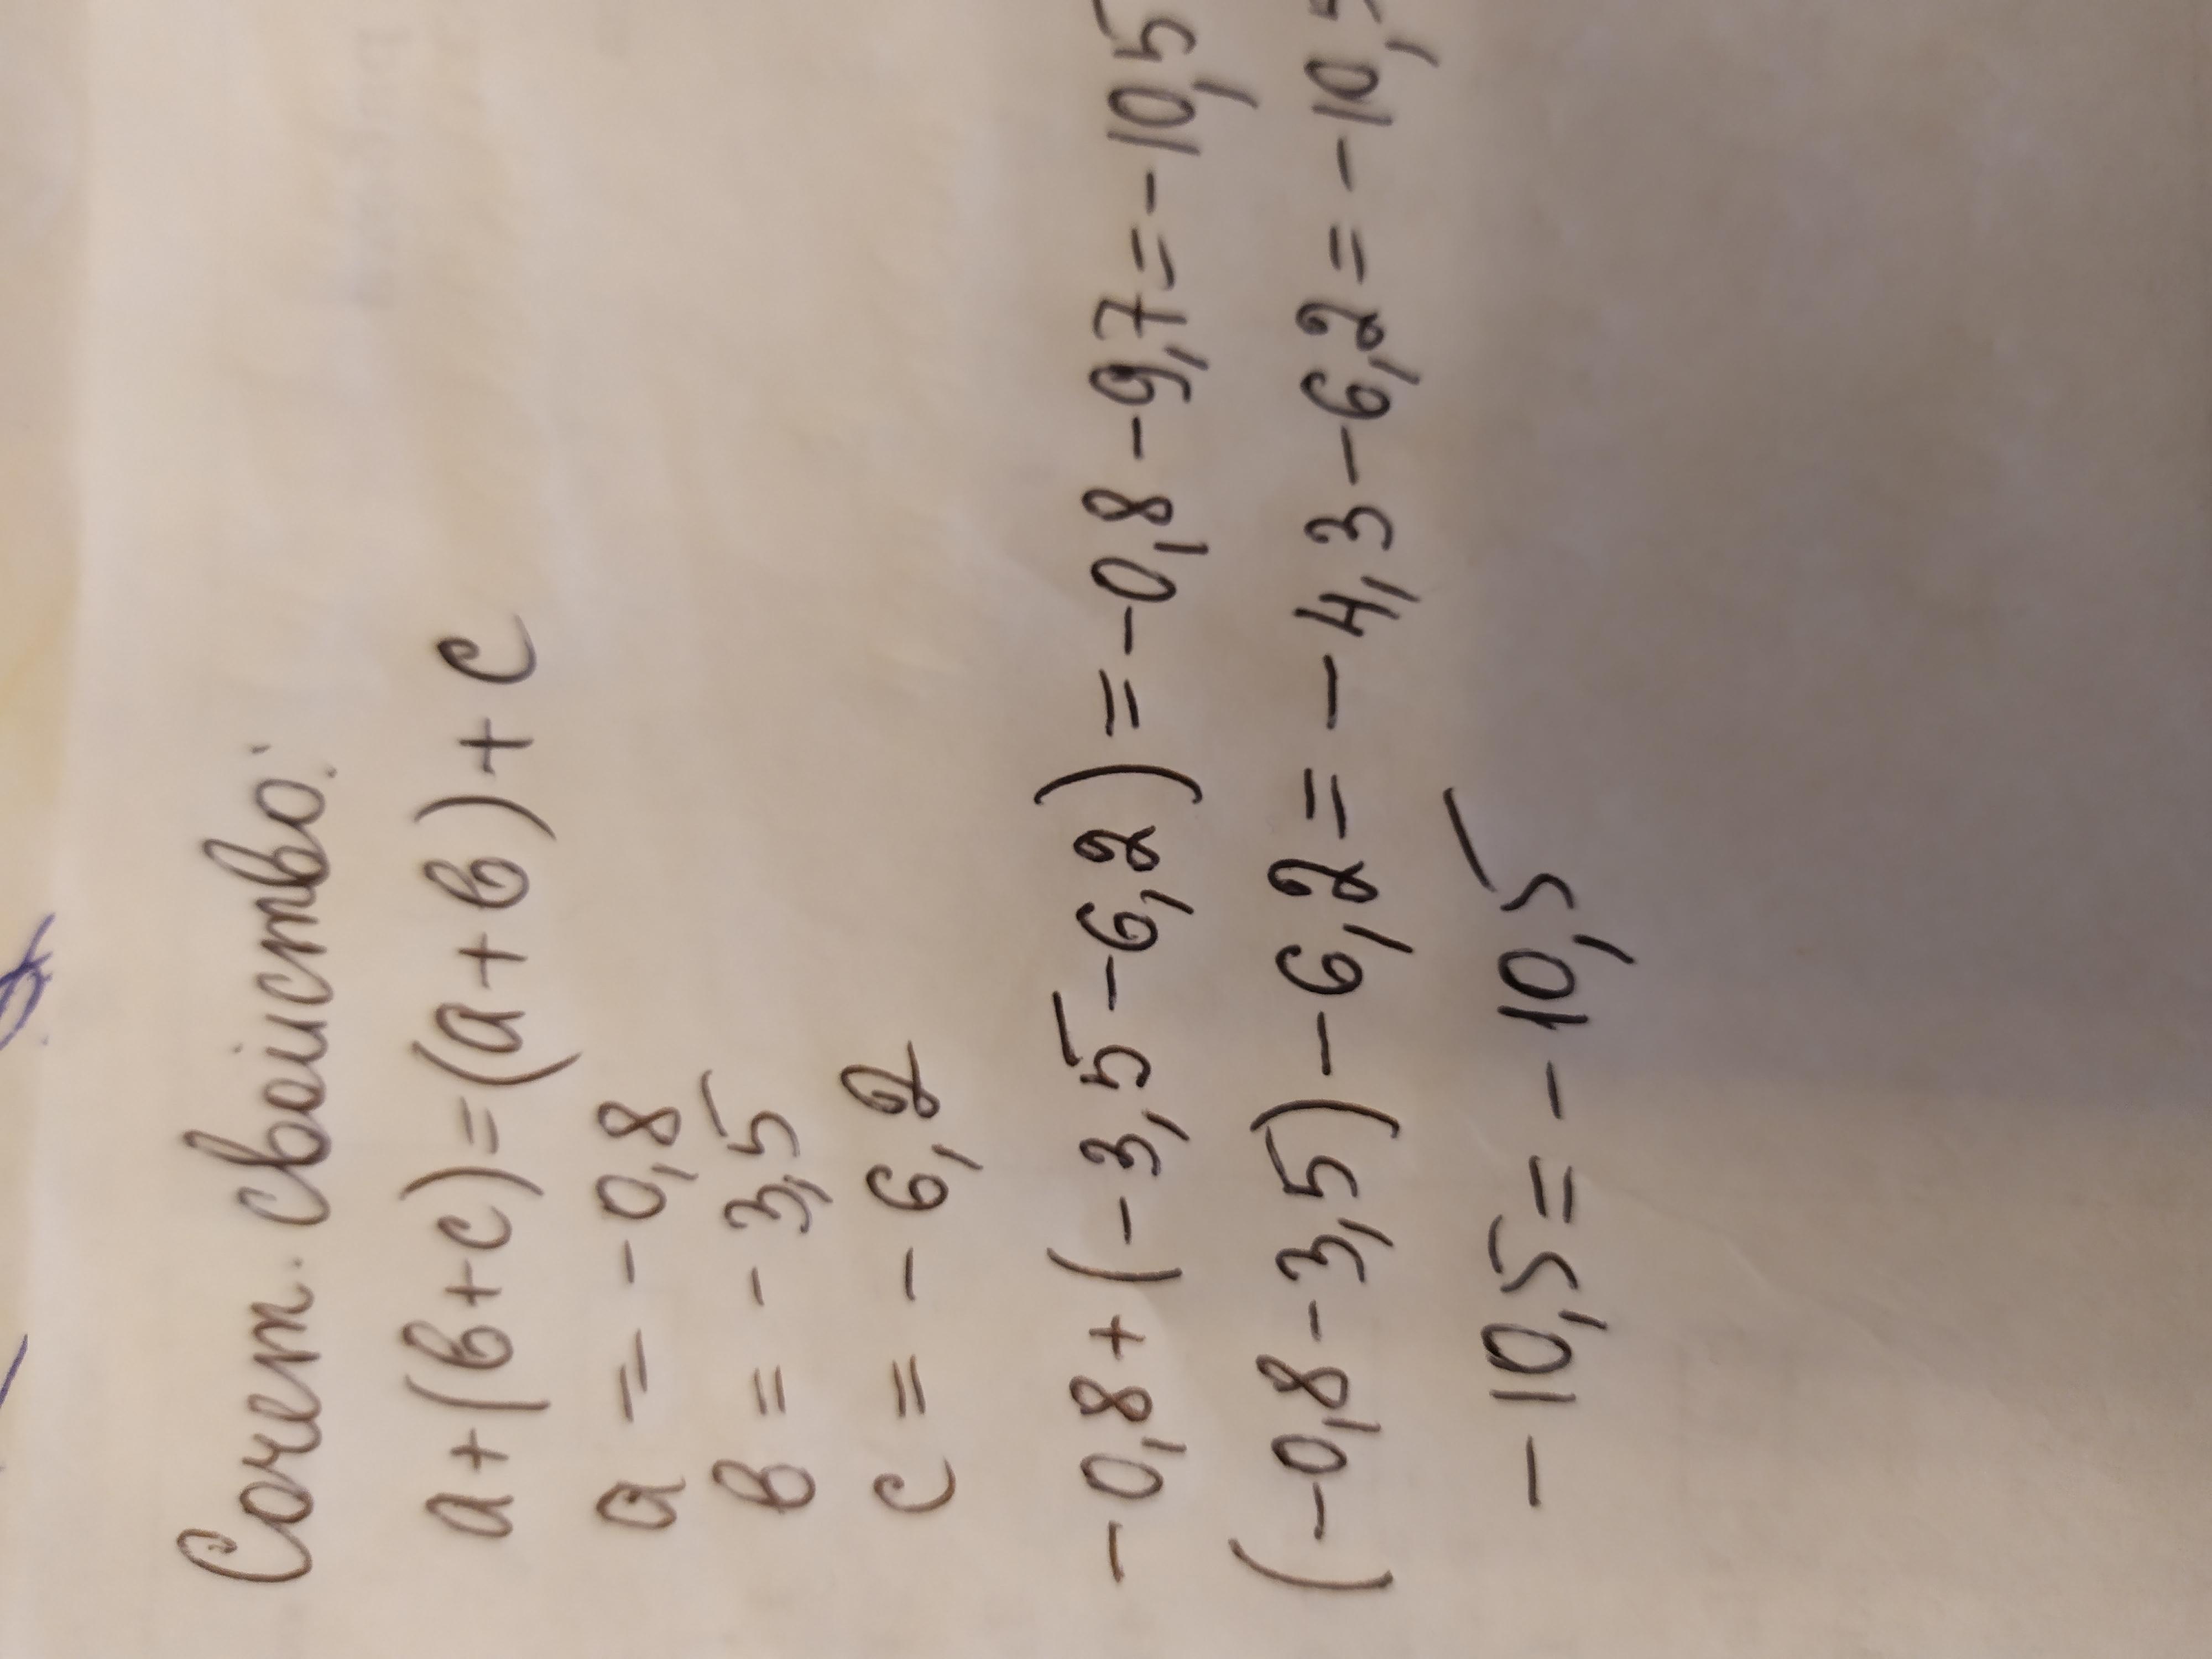 Сочет. свойство:
a+(в+c)=(a+в)+c
a = -0,8
в = -3,5
c = -6,2
-0,8+(-3,5-6,2)=-0,8-9,7=-10,5
(-0,8-3,5)-6,2=-4,3-6,2=-10,5
-10,5=-10,5